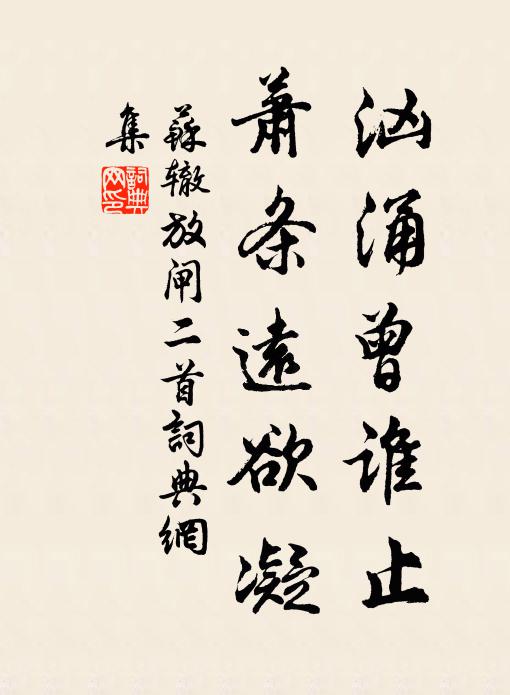 汹涌曾谁止
萧条遠欲凝
蘇辙放闸二首詞典網
集
詞典
网印